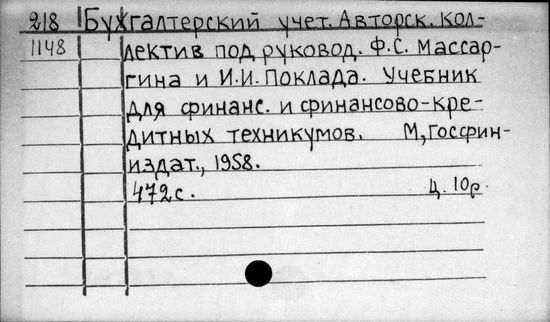 218 Бухгалтерский учет. Авторск. кол-
1148 лектив под руковод. Ф.С. Массар-
гина и И.И. Поклада. Учебник
для финанс. и финансово-кре-
дитных техникумов. М, Госфин-
издат., 1958.
472с. Ц. 10р.